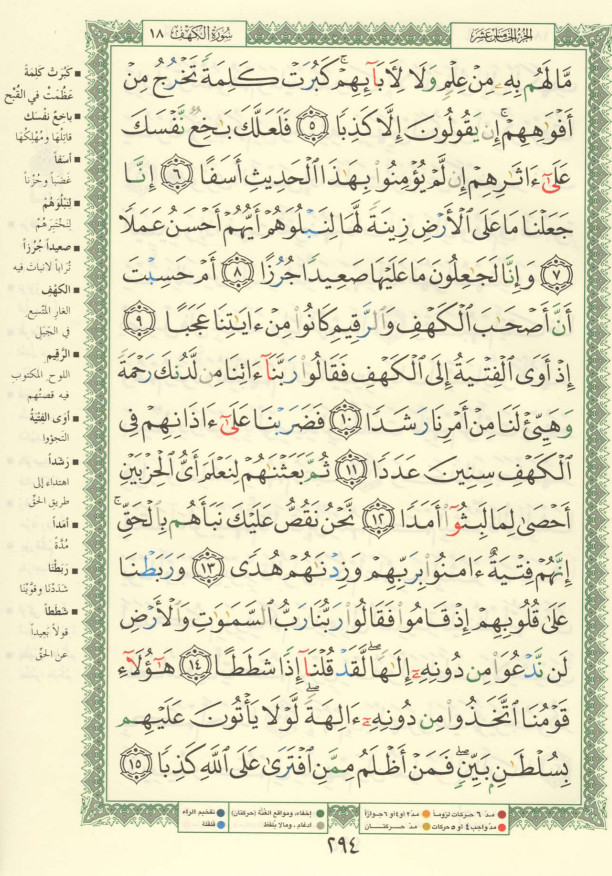 سُورَةُ الكَهْفِ ١٨
الجُزْءُ الخَامِسَ عَشَرَ
مَّا لَهُم بِهِۦ مِنْ عِلْمٍ وَلَا لِأَبَآئِهِمْ ۚ كَبُرَتْ كَلِمَةً تَخْرُجُ مِنْ
أَفْوَٰهِهِمْ ۚ إِن يَقُولُونَ إِلَّا كَذِبًا ٥ فَلَعَلَّكَ بَٰخِعٌ نَّفْسَكَ
عَلَىٰٓ ءَاثَٰرِهِمْ إِن لَّمْ يُؤْمِنُوا۟ بِهَٰذَا ٱلْحَدِيثِ أَسَفًا ٦ إِنَّا
جَعَلْنَا مَا عَلَى ٱلْأَرْضِ زِينَةً لَّهَا لِنَبْلُوَهُمْ أَيُّهُمْ أَحْسَنُ عَمَلًا
٧ وَإِنَّا لَجَٰعِلُونَ مَا عَلَيْهَا صَعِيدًا جُرُزًا ٨ أَمْ حَسِبْتَ
أَنَّ أَصْحَٰبَ ٱلْكَهْفِ وَٱلرَّقِيمِ كَانُوا۟ مِنْ ءَايَٰتِنَا عَجَبًا ٩
إِذْ أَوَى ٱلْفِتْيَةُ إِلَى ٱلْكَهْفِ فَقَالُوا۟ رَبَّنَآ ءَاتِنَا مِن لَّدُنكَ رَحْمَةً
وَهَيِّئْ لَنَا مِنْ أَمْرِنَا رَشَدًا ١٠ فَضَرَبْنَا عَلَىٰٓ ءَاذَانِهِمْ فِى
ٱلْكَهْفِ سِنِينَ عَدَدًا ١١ ثُمَّ بَعَثْنَٰهُمْ لِنَعْلَمَ أَىُّ ٱلْحِزْبَيْنِ
أَحْصَىٰ لِمَا لَبِثُوٓا۟ أَمَدًا ١٢ نَّحْنُ نَقُصُّ عَلَيْكَ نَبَأَهُم بِٱلْحَقِّ ۚ
إِنَّهُمْ فِتْيَةٌ ءَامَنُوا۟ بِرَبِّهِمْ وَزِدْنَٰهُمْ هُدًى ١٣ وَرَبَطْنَا
عَلَىٰ قُلُوبِهِمْ إِذْ قَامُوا۟ فَقَالُوا۟ رَبُّنَا رَبُّ ٱلسَّمَٰوَٰتِ وَٱلْأَرْضِ
لَن نَّدْعُوَا۟ مِن دُونِهِۦٓ إِلَٰهًا ۖ لَّقَدْ قُلْنَآ إِذًا شَطَطًا ١٤ هَٰٓؤُلَآءِ
قَوْمُنَا ٱتَّخَذُوا۟ مِن دُونِهِۦٓ ءَالِهَةً ۖ لَّوْلَا يَأْتُونَ عَلَيْهِم
بِسُلْطَٰنٍۭ بَيِّنٍ ۖ فَمَنْ أَظْلَمُ مِمَّنِ ٱفْتَرَىٰ عَلَى ٱللَّهِ كَذِبًا ١٥
■ كَبُرَتْ كَلِمَةً
عَظُمَتْ في القُبْحِ
■ باخِعٌ نفسَك
قاتِلُها ومُهْلِكُها
■ أسَفاً
غضَباً وحُزْناً
■ لِنَبْلُوَهُمْ
لِنَخْتَبِرَهُمْ
■ صعيداً جُرُزاً
تُراباً لانبات فيه
■ الكهْفِ
الغار المتّسع
في الجَبَل
■ الرَّقِيم
اللوح المكتوب
فيه قصتُهم
■ أوَى الفِتْيَةُ
التجؤوا
■ رَشَداً
اهتداء إلى
طريق الحقّ
■ أمَداً
مُدّةً
■ ربَطْنا
شدَدْنا وقوّيْنا
■ شَططاً
قولاً بَعيداً
عن الحقّ
مدّ ٦ حركات لزوماً مدّ٢ أو٤أو ٦جوازاً
مدّ واجب٤ أو ٥ حركات مدّ حــركتــان
إخفاء، ومواقع الغُنَّة (حركتان) تفخيم الراء
ادغام ، ومالا يُلفَظ قلقلة
٢٩٤